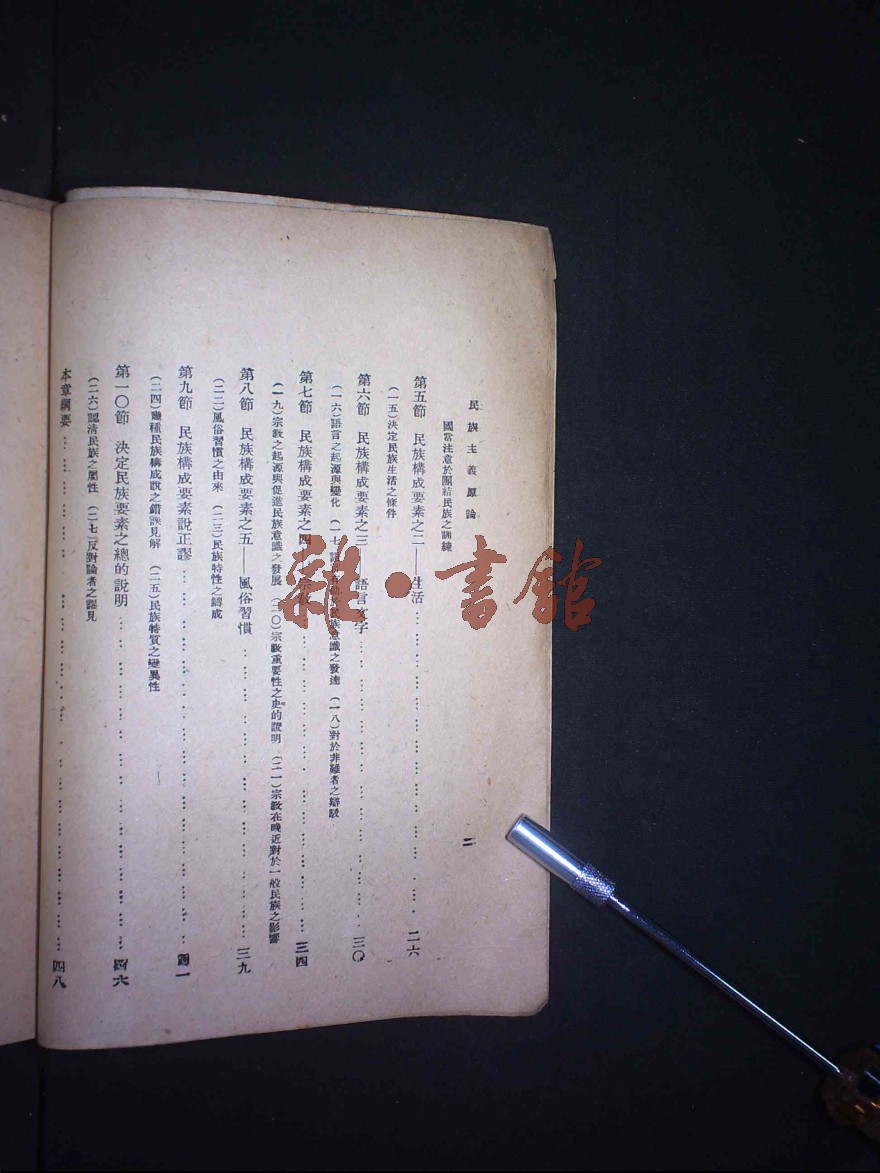 民族主義原論
二
國當注意於團結民族之訓練
第五節 民族構成要素之二——生活 二六
(一五)決定民族生活之條件
第六節 民族構成要素之三——語言文字 三〇
(一六)語言之起源與變化 (一七)語 民族意識之發達 (一八)對於非難者之辯駁
第七節 民族構成要素之四 宗教 三四
(一九)宗教之起源與促進民族意識之發展 (二〇)宗教重要性之史的證明 (二一)宗教在晚近對於一般民族之影響
第八節 民族構成要素之五——風俗習慣 三九
(二二)風俗習慣之由來 (二三)民族特性之鑄成
第九節 民族構成要素說正謬 四一
(二四)幾種民族構成說之錯誤見解 (二五)民族特質之變異性
第一〇節 決定民族要素之總的說明 四六
(二六)認清民族之屬性 (二七)反對論者之謬見
本章綱要 四八
雜·書館